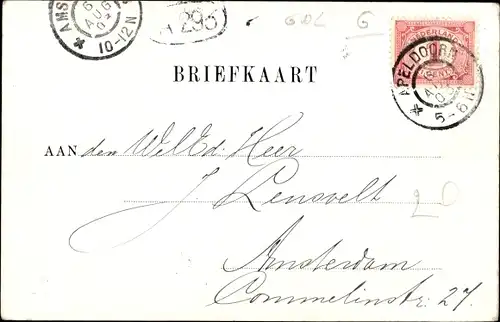 AMS
6
AUG
10-12 N
293
GDL
G
NEDERLAND
APELDOORN
AUG
5-6
BRIEFKAART
AAN den WelEd. Heer
J. Lensvelt
20
Amsterdam
Commelinstr. 27.